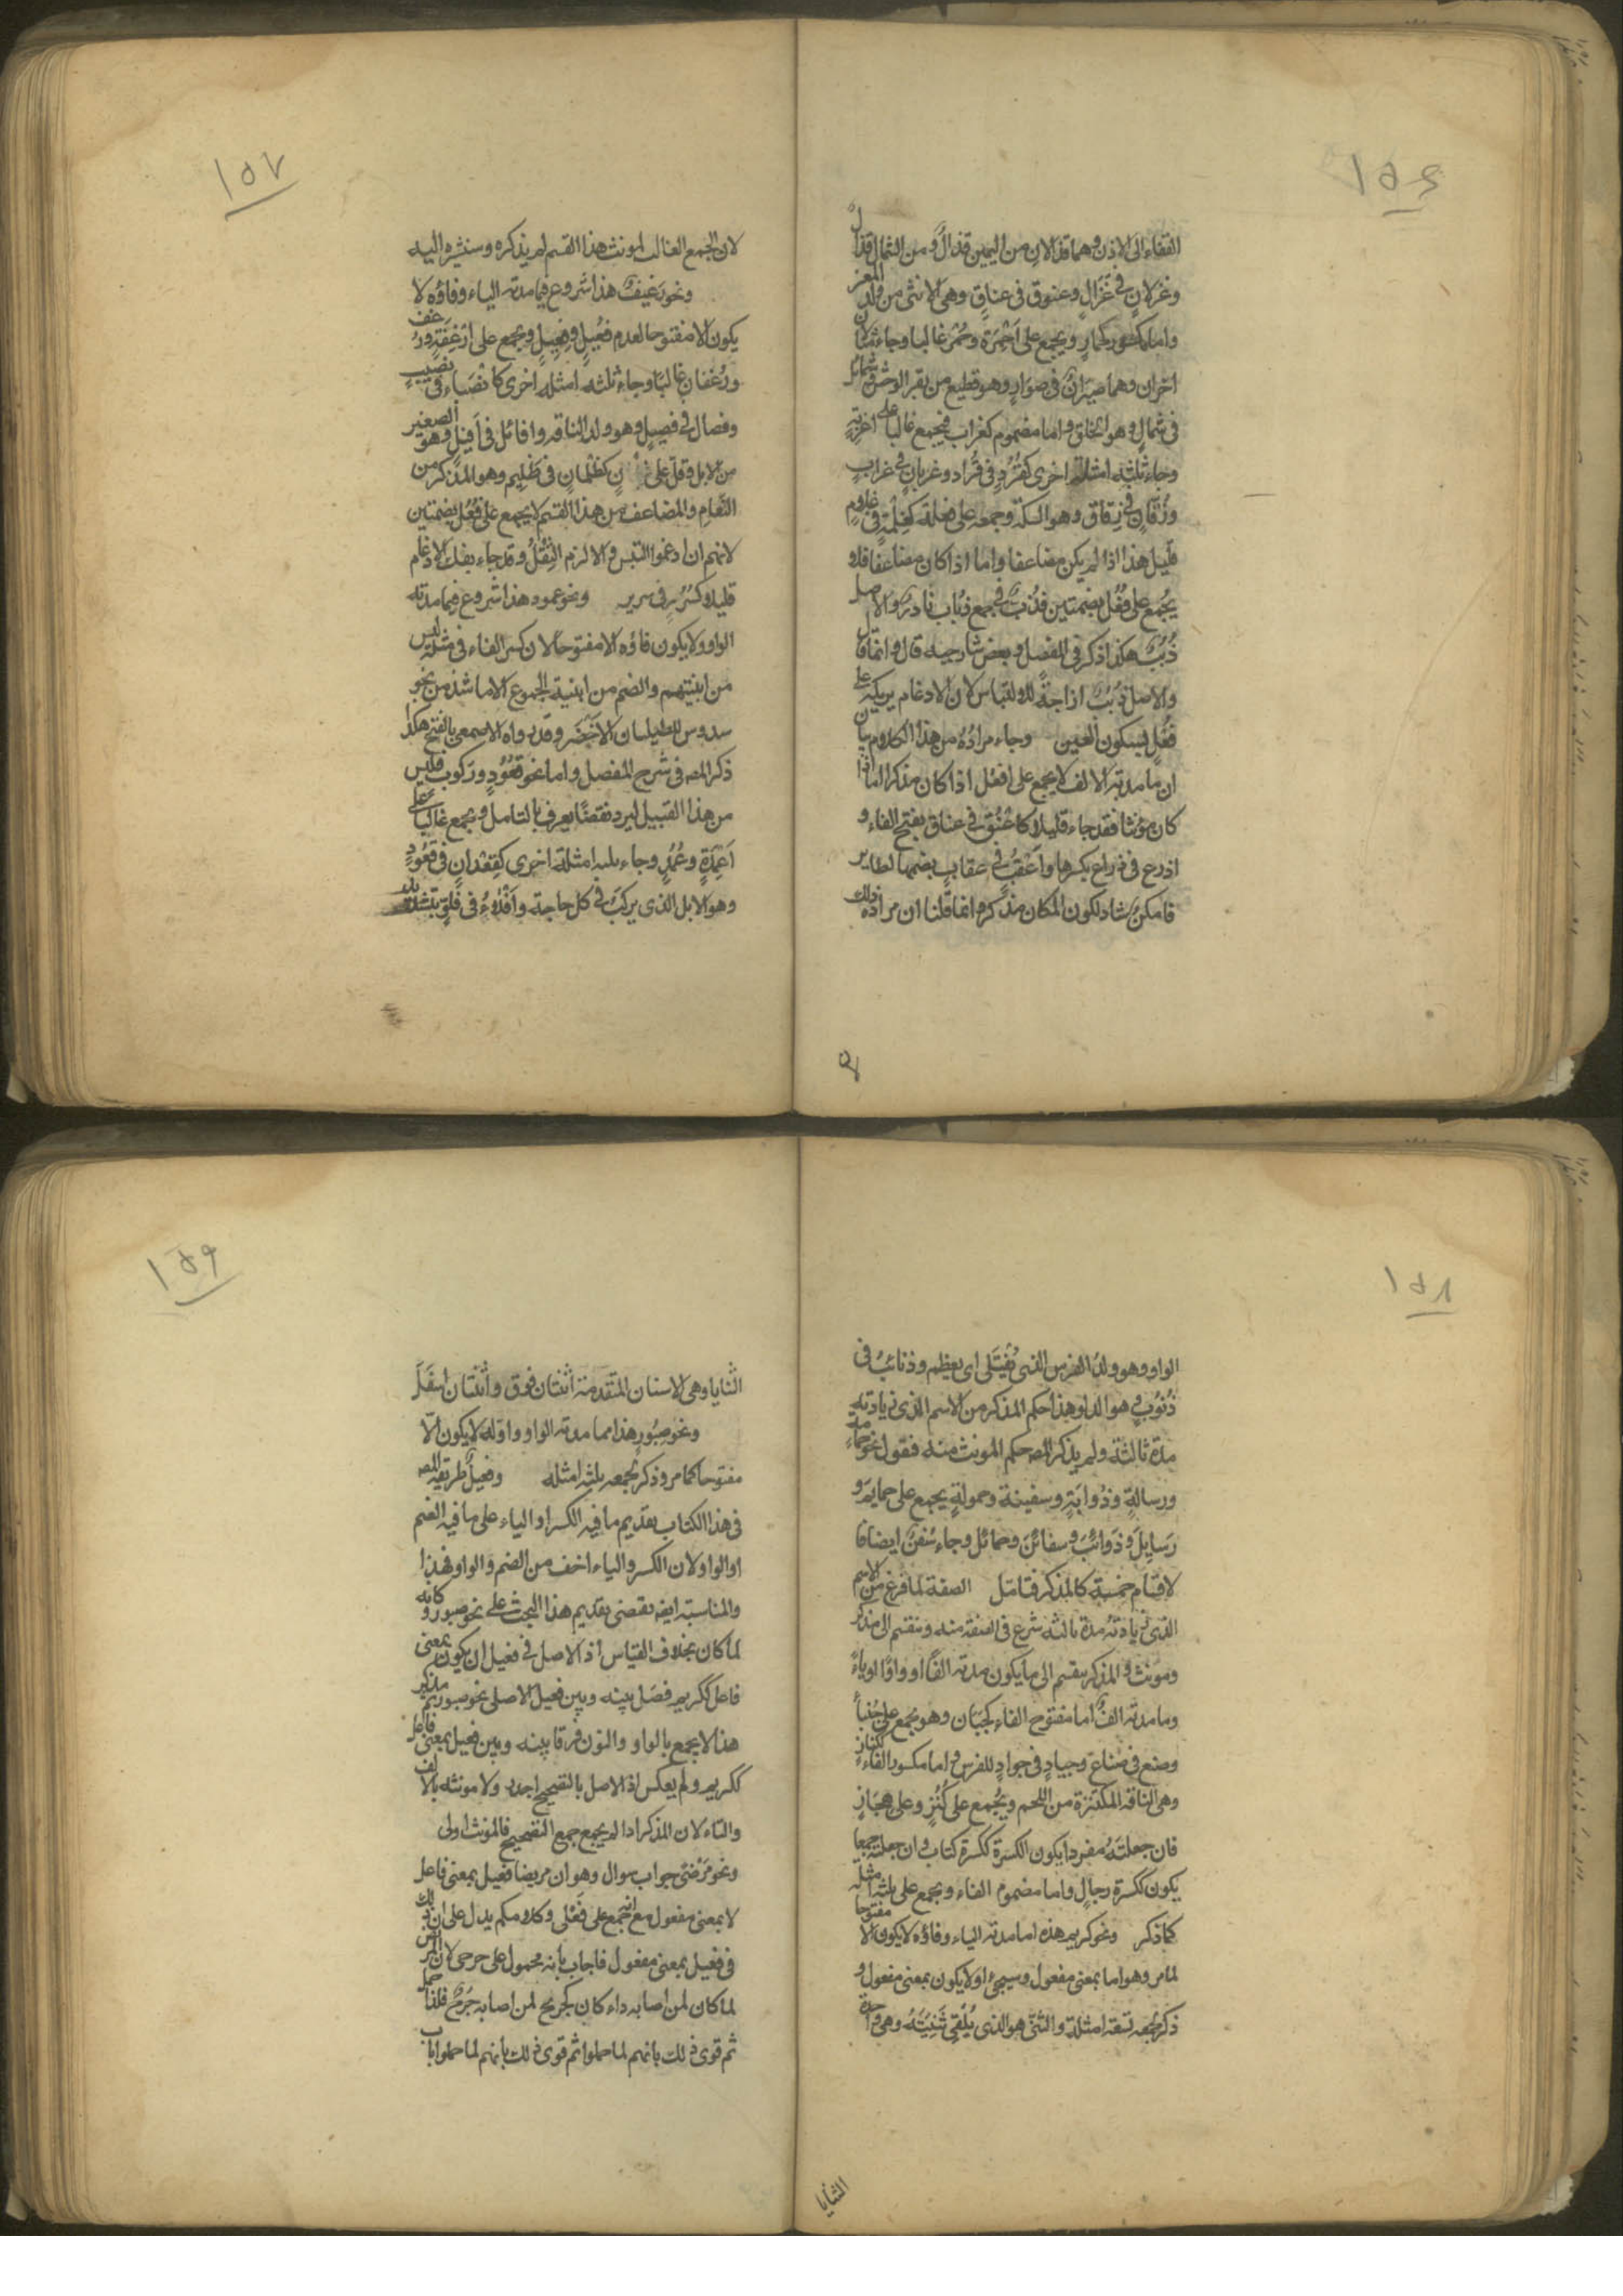 ١٥٦
القفاء الى الاذن وهما قذالان من اليمين قذال ومن الشمال قذال
وغزلان في غَزَالٍ وعنوق فى عناقٍ وهى الانثى من ولد المعز
واما مكسور كحمارٍ ويجمع على اَحْمِرَة وحُمُر غالبا وجاء مثالان
اخران وهما صيران فى صِوَارٍ وهو قطيع من بقر الوحش وشمائل
فى شمالٍ وهو الخلق واما مضموم كغراب فيجمع غالبا على اغربةٍ
وجاء ثلثه امثلة اخرى كقُرُدٍ فى قُراد وغربانٍ فى غرابٍ
وزُقّانٍ فى زقاق وهو السكة وجمعه على فعلة كغِلْمَةٍ فى غلامٍ
قليل هذا اذا لم يكن مضاعفا واما اذا كان مضاعفا فلا
يجُمع على فُعُل بضمتين فذُبّ فى جمع ذباب نادرٌ والاصل
ذُبُبٌ هكذا ذكر فى المفصل وبعض شارحيه قال واتفاقا
والاصل ذُبُبٌ ازاحةً للالتباس لان الادغام يريكه على
فُعْلٍ بسكون العين وجاء مرادُهُ من هذا الكلام بيان
ان ما مدته الالف لا يجمع على افعُل اذا كان مذكرا اما اذا
كان مؤنثا فقد جاء قليلا كاَعْنُقٍ فى عناق بفتح الفاء و
اذرع فى ذراع بكسرها واَعْقُبٌ فى عقابٍ بضمها لطاير
فامكنٌ شاذ لكون المكان مذكرا وانما قلنا ان مراده ذلك
١٥٧
لان الجمع الغالب لمونث هذا القسم لم يذكره وسنشيره اليه
ونحو رَغيفٌ هذا شروع فيما مدته الياء وفاؤه لا
يكون الا مفتوحا لعدم فُعِيلٍ وفِعِيلٍ ويجمع على اَرْغِفَةٍ ورُغُفٍ
ورُغفانٍ غالبًا وجاء ثلثه امثله اخرى كانْصِبَاءَ فى نصيبٍ
وفصال فى فصيلٍ وهو ولد الناقه وافائل فى اَفِيلٍ وهو الصغير
من الابل وقلّ على كظلمانٍ فى ظَليم وهو المذكر من
النَّعامِ والمضاعف من هذا القسم لا يجمع على فُعُل بضمتين
لانهم ان ادغموا التبس والا لزم الثِّقَلُ وقد جاء بفك الادغام
قليلا كسُرُرٍ فى سرير ونحو عمود هذا شروع فيما مدته
الواو ولا يكون فاؤه الا مفتوحًا لان كسر الفاء فى مثله ليس
من ابنيتهم والضم من ابنية الجموع الا ما شذ من نحو
سدوس للطيلسان الاَخْضَر وقد رواه الاصمعى بالفتح هكذا
ذكر المصـ فى شرح المفصل واما نحو قُعُودٍ وركوب فليس
من هذا القبيل ليرد نقضًا يعرف بالتامل ويجمع غالبا على
اَعْمِدَةٍ وعُمُدٍ وجاء ثلثه امثلة اخرى كقِعْدانٍ فى قَعُودٍ
وهو الابل الذى يركبَ فى كل حاجة واَفْلاءُ فى فَلُوٍّ بتشديد
١٥٨
الواو وهو ولدُ الفرس الذى يُفْتَلى اى يعظم وذنائبُ فى
ذَنُوْبٍ وهو الدلو وهذا حكم المذكر من الاسم الذى زيادته
مدة ثالثة ولم يذكر المصـ حكم المونث منه فنقول نحو حمامة
ورسالةٍ وذُوابَةٍ وسفينة وحمولةٍ يجمع على حمايمَ و
رَسايلَ وذَوائبَ وسفائنَ وحمائل وجاء سُفُنٌ ايضا فا
لاقسام خمسة كالمذكر فتامّل الصفة لما فرغ من الاسم
الذى زيادتُهُ مدة ثالثه شرع فى الصفة منه وينقسم الى مذكر
ومونث والمذكر ينقسم الى ما يكون مدته الفًا او واوًا او ياءً
وما مدته الفٌ اما مفتوح الفاء كجَبَان وهو يجمع على جُبَناء
وصنع فى صناع وجيادٍ فى جوادٍ للفرس واما مكسور الفاء ككنازٍ
وهى الناقه المكتنزة من اللحم ويُجمع على كُنُزٍ وعلى هِجَانٍ
فان جعلتَهُ مفردا يكون الكسرة ككسرة كتاب وان جعلته جمعا
يكون ككسرة رجالٍ واما مضموم الفاء ويجمع على ثلثه امثله
كما ذكر ونحو كريم هذه اما مدته الياء وفاؤه لا يكون الا مفتوحا
لما مر وهو اما بمعنى مفعول وسيجئ او لا يكون بمعنى مفعول و
ذكر لجمعه تسعة امثلة والثنىّ هو الذى يُلْقِى ثَنِيَّتَهُ وهى واحدة
الثنايا
١٥٩
الثنايا وهى الاسنان المتقدمة اثنتان فوق واثنتان اسفَلَ
ونحو صَبُورٍ هذا مما مدته الواو واوّله لا يكون الّا
مفتوحا كما مر وذكر لجمعه ثلثه امثله وفعيل طريقة المصـ
فى هذا الكتاب تقديم ما فيه الكسر او الياء على ما فيه الضم
او الواو ولان الكسر والياء اخف من الضم والواو فهذا
والمناسبة ايضه تقتضى تقديم هذا البحث على نحو صبور وكانه
لما كان بخلاف القياس اذ الاصل فى فعيل ان يكون بمعنى
فاعل ككريم فصَل بينه وبين فعيل الاصلى نحو صبور ثم مذكر
هذا لا يجمع بالواو والنون فرقا بينه وبين فعيل بمعنى فاعل
ككريم ولم يعكس اذ الاصل بالتصحيح اجدر ولا مونثه بالالف
والتاء لان المذكر اذا لم يجمع جمع التصحيح فالمونث اولى
ونحو مَرْضىٰ جواب سوال وهو ان مريضا فعيل بمعنى فاعل
لا بمعنى مفعول مع انه جمع على فَعْلى وكلامكم يدل على ان ذلك
فى فعيل بمعنى مفعول فاجاب بانه محمول على جرحى لان المرض
لما كان لمن اصابه داء كان كجريح لمن اصابه جَرحٌ فلذا حمل
ثم قوى ذلك بانهم لما حملوا ثم قوى ذلك بانهم لما حملوا باب